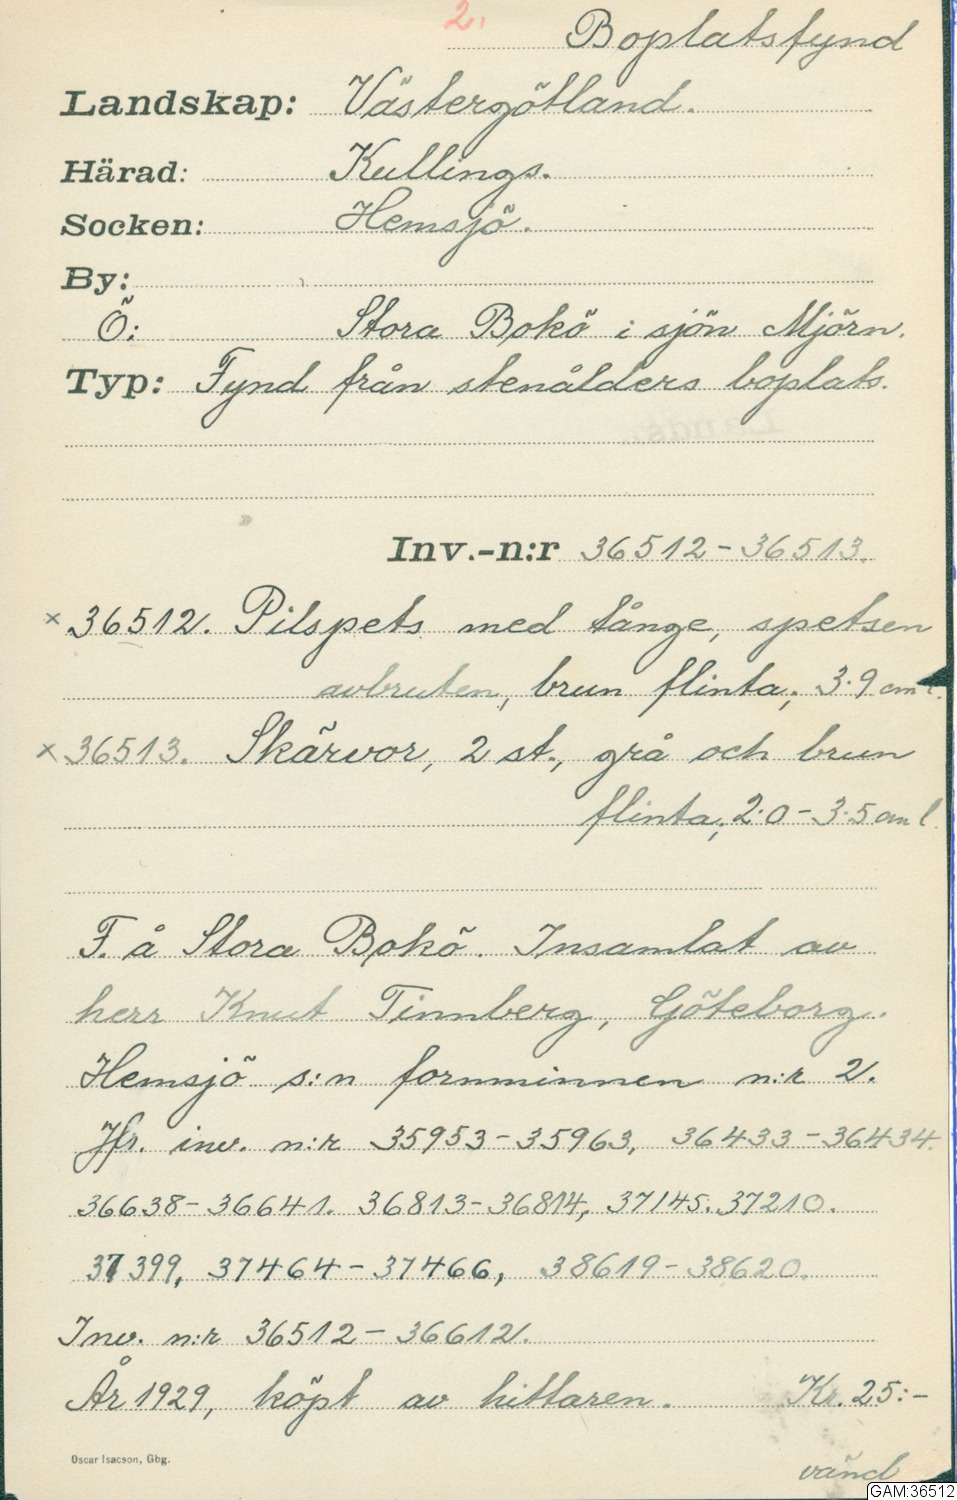 2.
Boplatsfynd
Landskap: Västergötland.
Härad: Kullings.
Socken: Hemsjö.
By:
Ö: Stora Bokö i sjön Mjörn.
Typ: Fynd från stenålders boplats.
Inv.-n:r 36512-36513.
× 36512. Pilspets med tånge, spetsen
avbruten, brun flinta; 3.9 cm l.
× 36513. Skärvor, 2 st., grå och brun
flinta; 2.0-3.5 cm l.
F. å Stora Bokö. Insamlat av
herr Knut Tinnberg, Göteborg.
Hemsjö s:n fornminnen n:r 2.
Jfr. inv. n:r 35953-35963, 36433-36434.
36638-36641. 36813-36814, 37145. 37210.
37399, 37464-37466, 38619-38620.
Inv. n:r 36512-36612.
År 1929, köpt av hittaren. Kr. 25:-
Oscar Isacson, Gbg.
vänd
GAM:36512